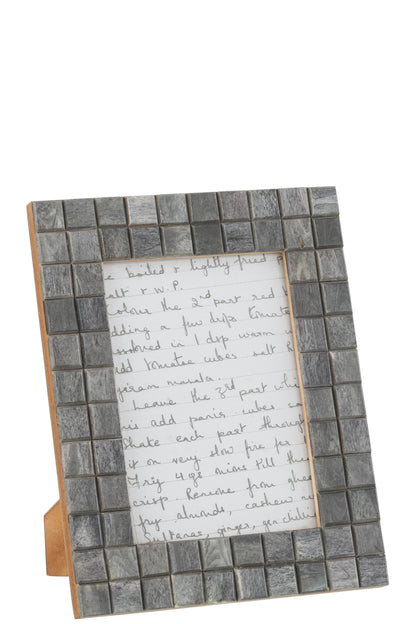 boiled & lightly fried
salt & W.P.
colour the 2nd part red
adding a few drops tomato
in 1 dip warm
add tomatoe cubes salt
masala.
Leave the 3rd part whi
add panir cubes
each part through
it on very slow fire for
Fry 4 gs onions till the
crisp. Remove from ghee
fry almonds, cashew nu
Sultanas, ginger, gr. chilli